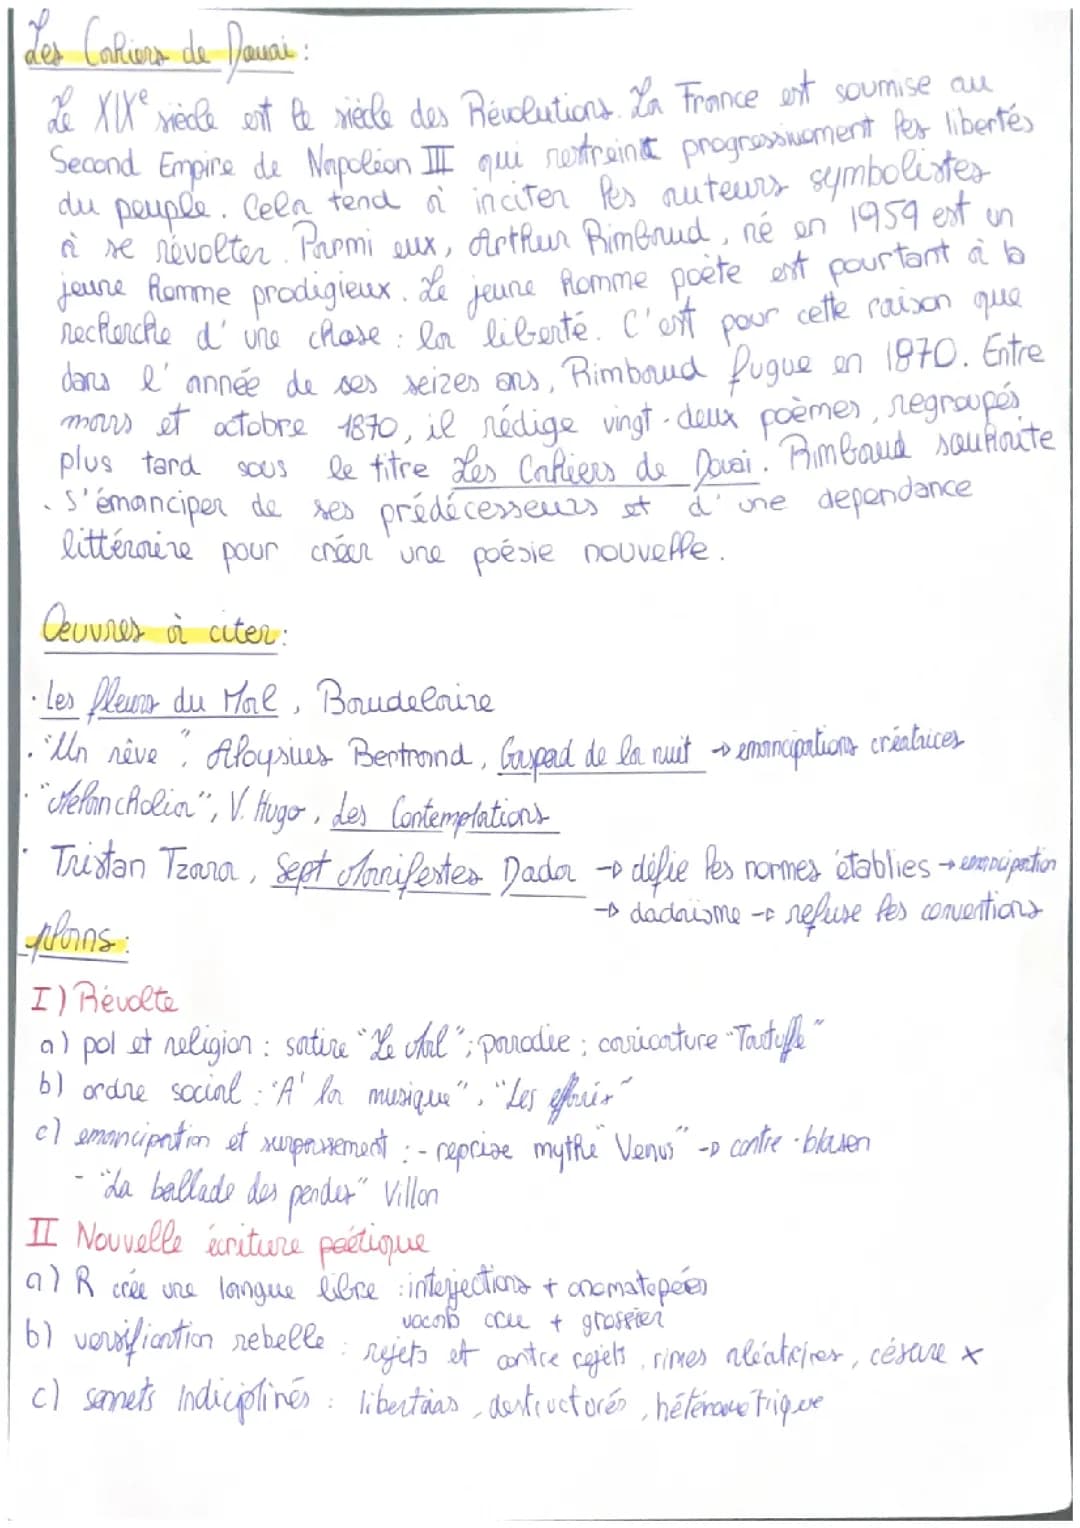 Les Cahiers de Douai :
Le XIXe siècle est le siècle des Révolutions. La France est soumise au
Second Empire de Napoléon III qui restreint progressivement les libertés
du peuple. Cela tend à inciter les auteurs symbolistes
à se révolter. Parmi eux, Arthur Rimbaud, né en 1959 est un
jeune homme prodigieux. Le jeune homme poète est pourtant à la
recherche d'une chose : la liberté. C'est pour cette raison que
dans l'année de ses seizes ans, Rimbaud fugue en 1870. Entre
mars et octobre 1870, il rédige vingt-deux poèmes, regroupés
plus tard sous le titre Les Cahiers de Douai. Rimbaud souhaite
s'émanciper de ses prédécesseurs et d'une dependance
littéraire pour créer une poésie nouvelle.
Œuvres à citer :
· Les fleurs du Mal, Baudelaire
· "Un rêve", Aloysius Bertrand, Gaspad de la nuit → emancipations créatrices
· "Melancholia", V. Hugo, Les Contemplations
· Tristan Tzara, Sept Manifestes Dada → défie les normes établies → emancipation
→ dadaisme → refuse les conventions
plans :
I) Révolte
a) pol et religion : satire "Le Mal" ; parodie ; caricature "Tartuffe"
b) ordre social : "A la musique", "Les effarés"
c) emancipation et surpassement : - reprise mythe "Venus" → contre-blason
- "La ballade des pendus" Villon
II Nouvelle écriture poétique
a) R crée une langue libre : interjections + onomatopées
vocab cru + grossier
b) versification rebelle : rejets et contre rejets, rimes aléatoires, césure x
c) sonnets indiciplinés : libertins, destructurés, hétérométrique